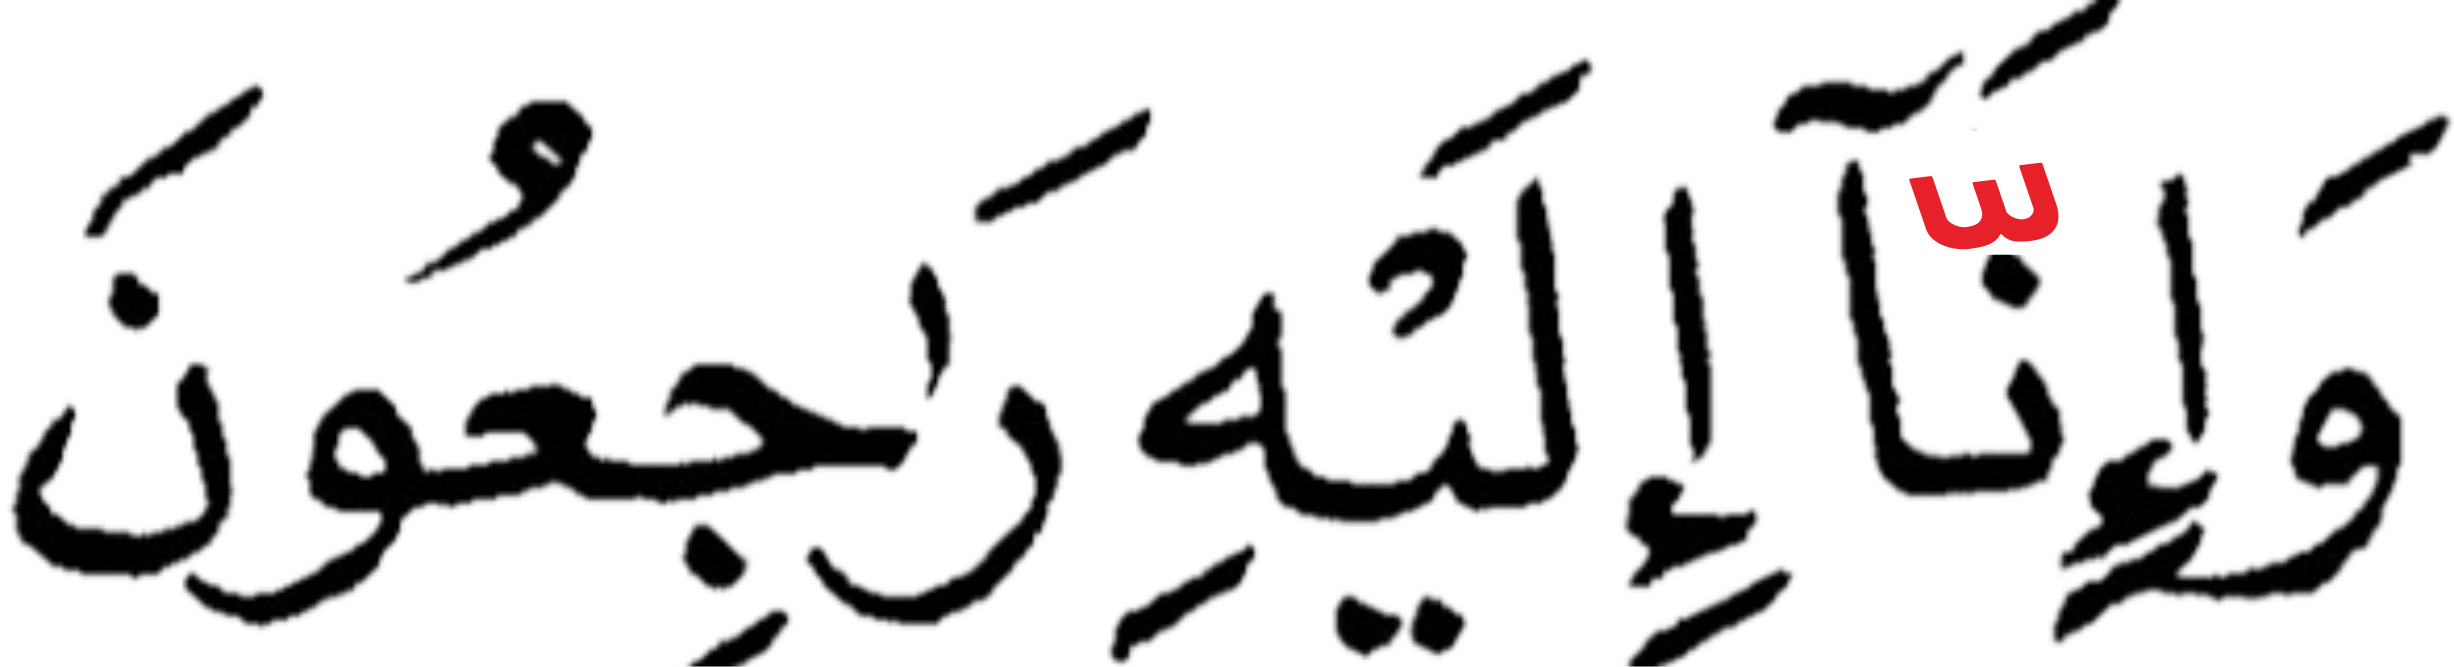 وَإِنَّآ إِلَيْهِ رَٰجِعُونَ